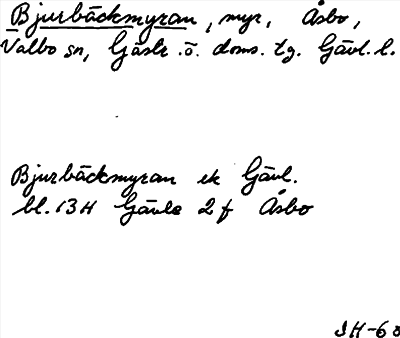 Bjurbäckmyran, myr, Åsbo,
Valbo sn, Gästr. ö. doms. tg. Gävl. l.
Bjurbäckmyran ek Gävl.
bl. 13H Gävle 2f Åsbo
IH-68